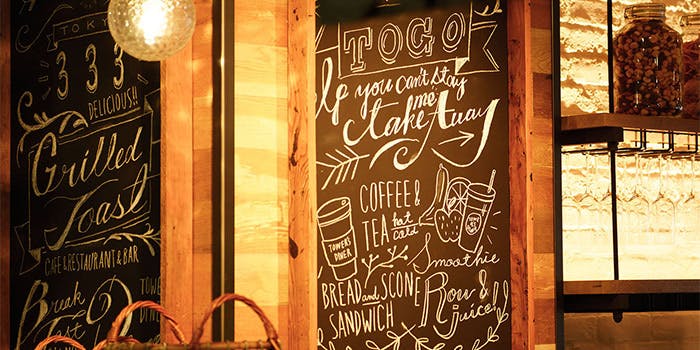 TOKY
333
DELICIOUS!!
Grilled
Toast
CAFE & RESTAURANT & BAR
Break
TOWE
DINE
TOGO
If you can't stay
me
take Away
COFFEE &
TEA hot
cold
TOWERS
DINER
Smoothie
BREAD and SCONE
SANDWICH
Row &
juice!!